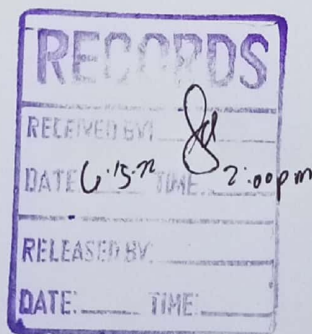 RECORDS
RECEIVED BY:
DATE 6·15·22 TIME: 2:00pm
RELEASED BY:
DATE: TIME: